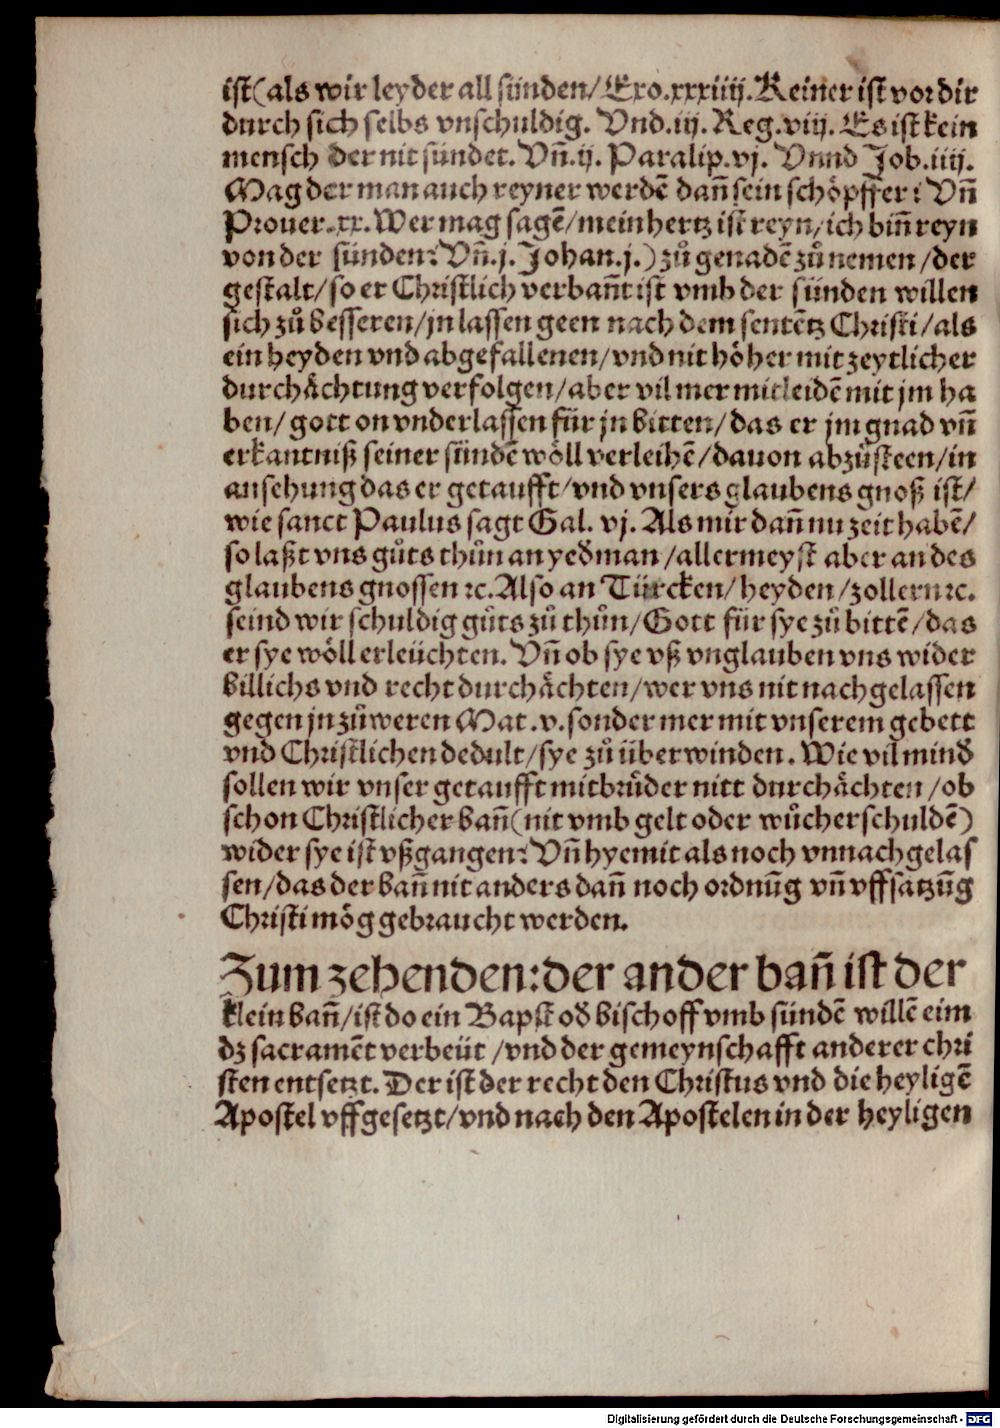 ist(als wir leyder all sünden/Exo.xxxiiij.Keiner ist vor dir
durch sich selbs vnschuldig. Vnd.iij. Reg.viij. Es ist kein
mensch der nit sündet. Vñ.ij. Paralip.vj. Vnnd Job.iiij.
Mag der man auch reyner werdē dañ sein schöpffer? Vñ
Prouer.xx. Wer mag sagē/mein hertz ist reyn/ich biñ reyn
von der sünden? Vñ.j. Johan.j.) zů genadē zů nemen/der
gestalt/so er Christlich verbañt ist vmb der sünden willen
sich zů besseren/jn lassen geen nach dem sentētz Christi/als
ein heyden vnd abgefallenen/vnd nit höher mit zeytlicher
durchächtung verfolgen/aber vil mer mitleidē mit jm ha
ben/gott on vnderlassen für jn bitten/das er jm gnad vñ
erkantniß seiner sündē wöll verleihē/dauon abzůsteen/in
ansehung das er getaufft/vnd vnsers glaubens gnoß ist/
wie sanct Paulus sagt Gal. vj. Als mir dañ nu zeit habē/
so laßt vns gůts thůn an yeđman/allermeyst aber an des
glaubens gnossen ꝛc. Also an Türcken/heyden/zollern ꝛc.
seind wir schuldig gůts zů thůn/Gott für sye zů bittē/das
er sye wöll erleüchten. Vñ ob sye vß vnglauben vns wider
billichs vnd recht durchächten/wer vns nit nachgelassen
gegen jn zůweren Mat.v. sonder mer mit vnserem gebett
vnd Christlichen dedult/sye zů überwinden. Wie vil minđ
sollen wir vnser getaufft mitbrůder nitt durchächten/ob
schon Christlicher bañ(nit vmb gelt oder wůcher schuldē)
wider sye ist vßgangen? Vñ hyemit als noch vnnachgelas
sen/das der bañ nit anders dañ noch ordnūg vñ vffsatzūg
Christi mög gebraucht werden.
Zum zehenden:der ander bañ ist der
klein bañ/ist do ein Bapst ođ bischoff vmb sündē willē eim
dz sacramēt verbeüt/vnd der gemeynschafft anderer chri
sten entsetzt. Der ist der recht den Christus vnd die heyligē
Apostel vffgesetzt/vnd nach den Apostelen in der heyligen
Digitalisierung gefördert durch die Deutsche Forschungsgemeinschaft - DFG